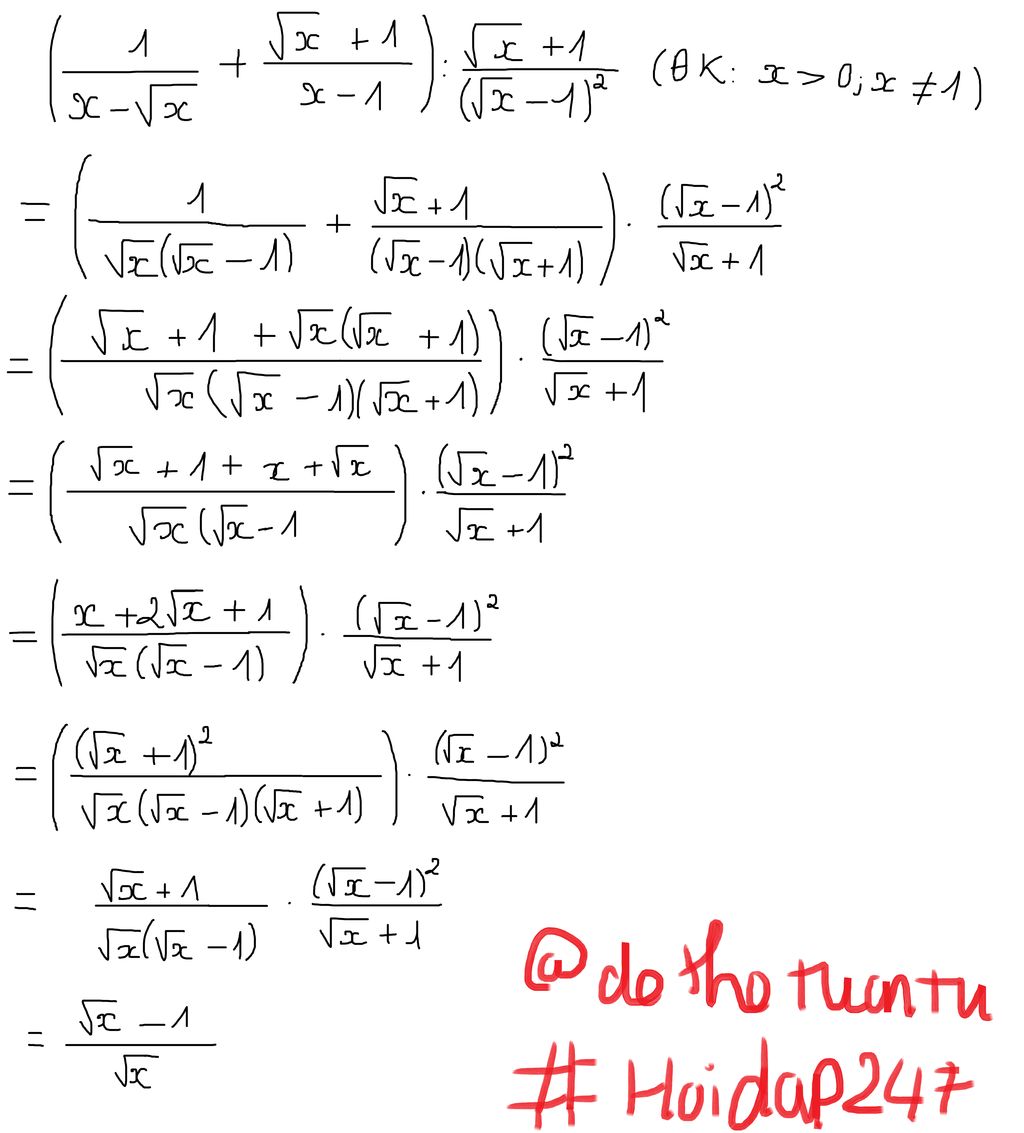 (1/(x-√x) + (√x + 1)/(x-1)) : (√x + 1)/(√x-1)² (ĐK: x > 0; x ≠ 1)
= (1/(√x(√x - 1)) + (√x + 1)/((√x-1)(√x+1))) · (√x-1)²/(√x + 1)
= ((√x + 1 + √x(√x + 1))/(√x(√x - 1)(√x + 1))) · (√x-1)²/(√x + 1)
= ((√x + 1 + x + √x)/(√x(√x-1)) · (√x-1)²/(√x + 1)
= ((x + 2√x + 1)/(√x(√x - 1))) · (√x-1)²/(√x + 1)
= ((√x + 1)²/(√x(√x - 1)(√x + 1))) · (√x - 1)²/(√x + 1)
= (√x + 1)/(√x(√x - 1)) · (√x-1)²/(√x + 1)
= (√x - 1)/√x
@do tho tuantu
# Hoidap247